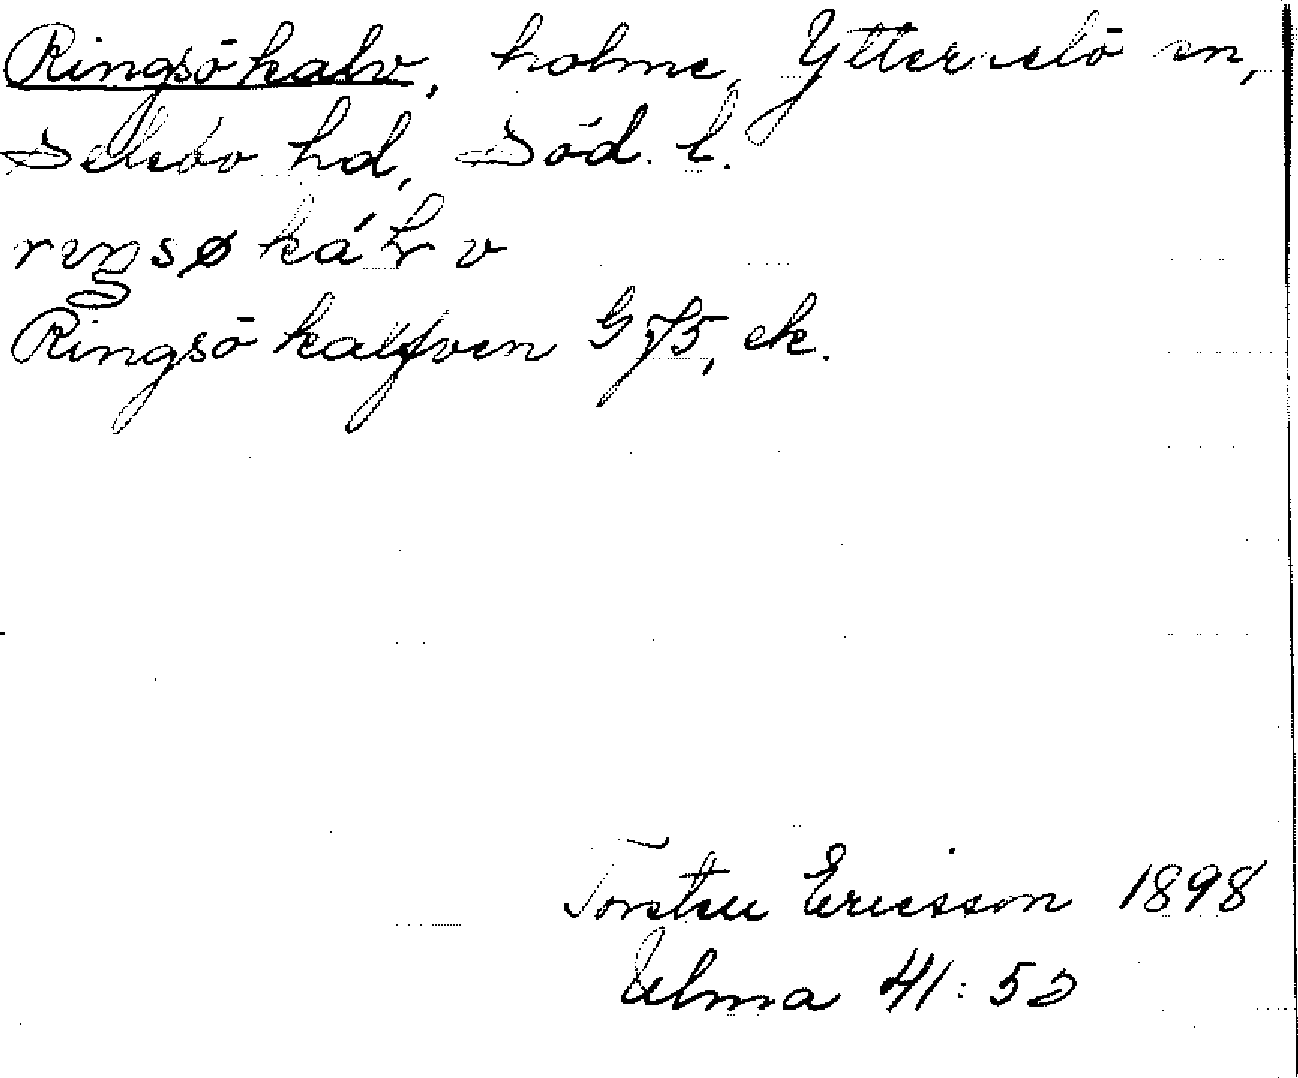 Ringsökalv, holme, Ytterselö sn,
Selebo hd, Söd. l.
Ringsö kalfven G 75, ek.
Torsten Ericsson 1898
Ulma 41:53